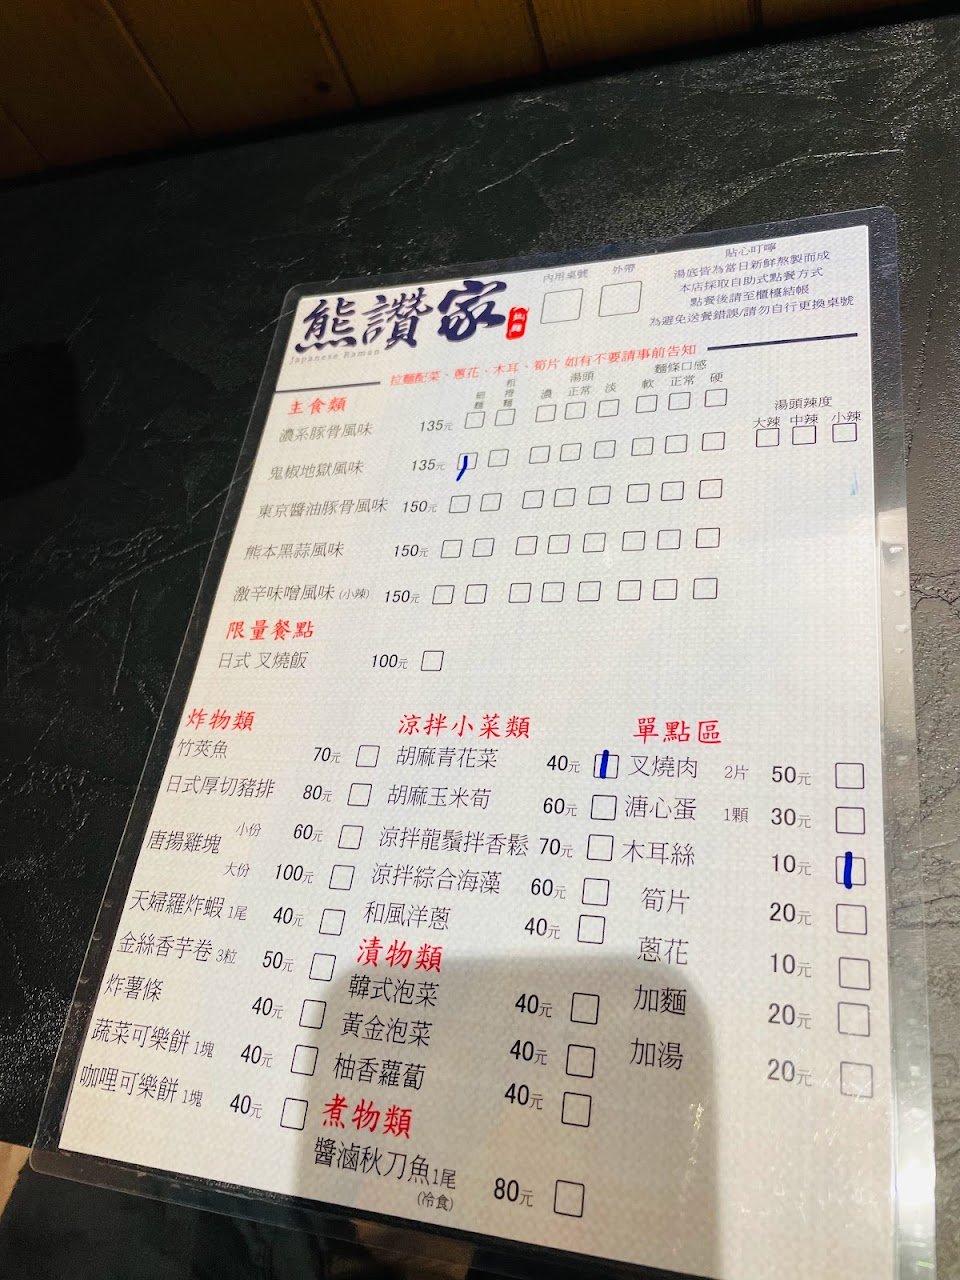 熊讚家
Japanese Ramen
內用桌號 外帶
貼心叮嚀
湯底皆為當日新鮮熬製而成
本店採取自助式點餐方式
點餐後請至櫃檯結帳
為避免送餐錯誤/請勿自行更換桌號
拉麵配菜、蔥花、木耳、筍片 如有不要請事前告知
主食類 細麵 粗捲麵 湯頭 濃 正常 淡 麵條口感 軟 正常 硬
湯頭辣度
大辣 中辣 小辣
濃系豚骨風味 135元
鬼椒地獄風味 135元
東京醬油豚骨風味 150元
熊本黑蒜風味 150元
激辛味噌風味(小辣) 150元
限量餐點
日式 叉燒飯 100元
炸物類
竹莢魚 70元
日式厚切豬排 80元
唐揚雞塊 小份 60元
大份 100元
天婦羅炸蝦 1尾 40元
金絲香芋卷 3粒 50元
炸薯條 40元
蔬菜可樂餅 1塊 40元
咖哩可樂餅 1塊 40元
涼拌小菜類
胡麻青花菜 40元
胡麻玉米荀 60元
涼拌龍鬚拌香鬆 70元
涼拌綜合海藻 60元
和風洋蔥 40元
漬物類
韓式泡菜 40元
黃金泡菜 40元
柚香蘿蔔 40元
煮物類
醬滷秋刀魚1尾 80元
(冷食)
單點區
叉燒肉 2片 50元
溏心蛋 1顆 30元
木耳絲 10元
筍片 20元
蔥花 10元
加麵 20元
加湯 20元